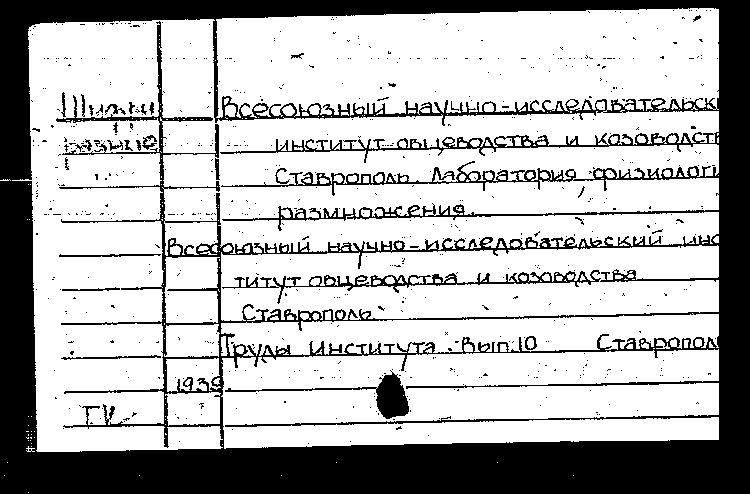 Всесоюзный научно-исследовательск
разные институт овцеводства и козоводств
Ставрополь. Лаборатория физиологи
размножения.
Всесоюзный научно-исследовательский инс
титут овцеводства и козоводства
Ставрополь.
Труды Института. Вып.10 Ставропол
1939.